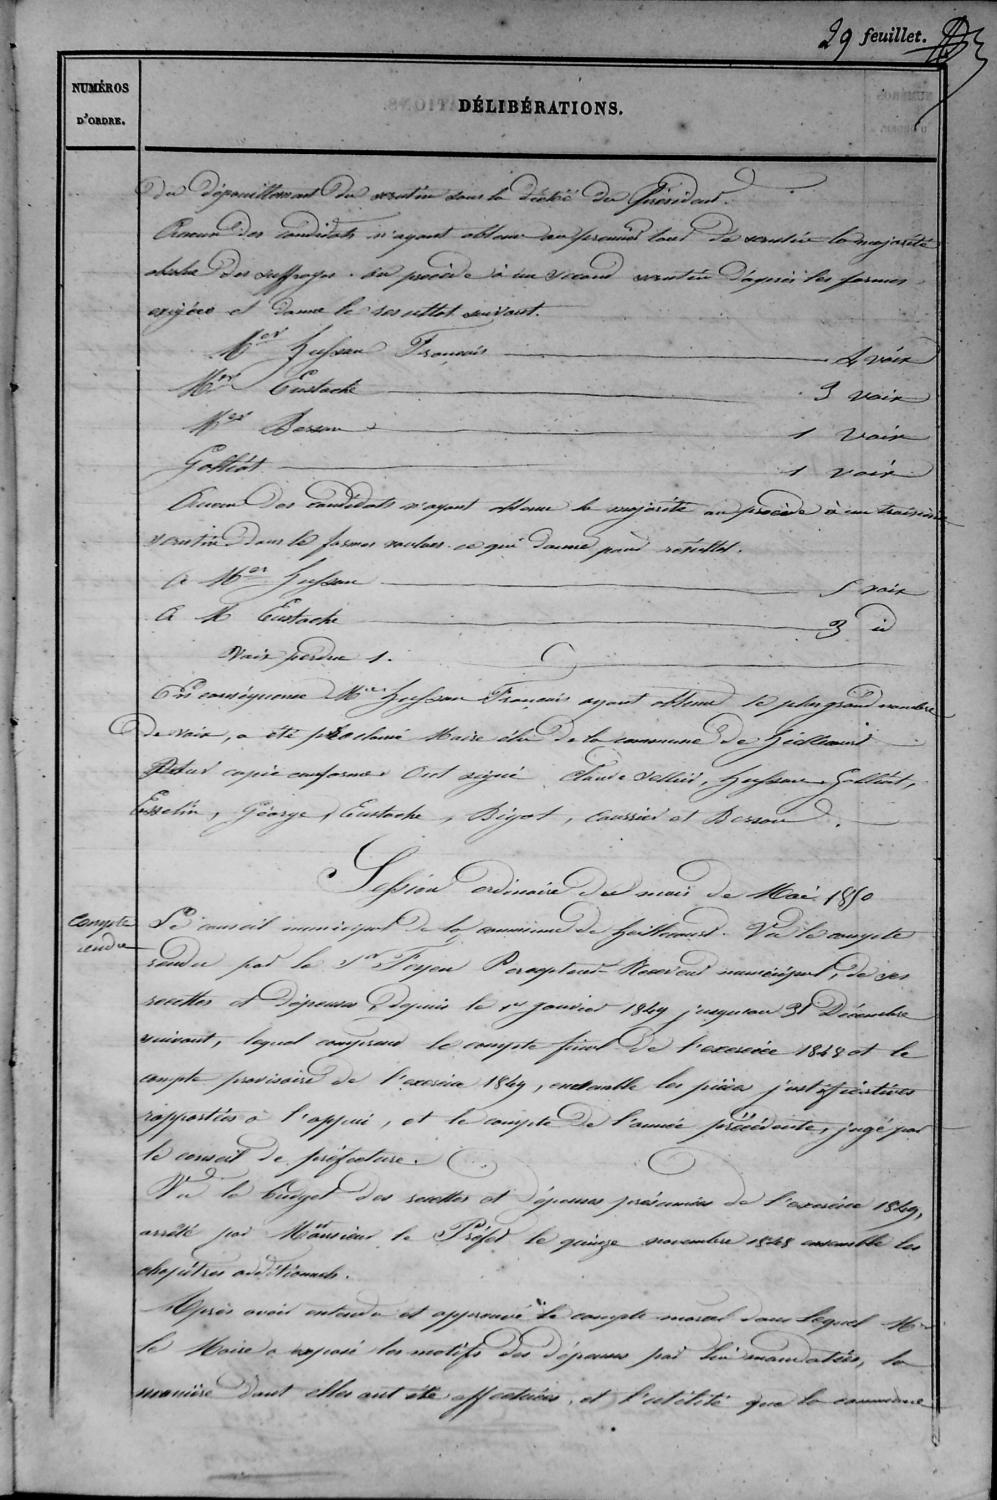 29 feuillet.
NUMÉROS
D'ORDRE.
DÉLIBÉRATIONS.
du dépouillement du scrutin sous la dictée du Président.
Aucun des candidats n'ayant obtenu au premier tour de scrutin la majorité
absolue des suffrages. on procède à un second scrutin d'après les formes
exigées et donne le resultat suivant.
Mer Husson François 4 voix
Mer Eustache 3 voix
Mer Besson 1 voix
Galliot 1 voix
Aucun des candidats n'ayant obtenu la majorité on procède à un troisième
scrutin dans les formes voulues ce qui donne pour résultat.
A Mer Husson 5 voix
A M Eustache 3 id
Voix perdue 1.
En conséquence Mer Husson François ayant obtenu le plus grand nombre
de voix, a été proclamé Maire élu de la commune de
Pour copie conforme Ont signé Claude Husson, Galliot,
George, Eustache, Bigot, et Besson
Session ordinaire du mois de Mai 1850
compte
rendu
Le conseil municipal de la commune de Vu le compte
rendu par le Sr Percepteur Receveur municipal, de ses
recettes et dépenses, depuis le 1er janvier 1849 jusqu'au 31 Décembre
suivant, lequel comprend le compte final de l'exercice 1848 et le
compte provisoire de l'exercice 1849, ensemble les pièces justificatives
rapportées à l'appui, et le compte de l'année précédente, jugé par
le conseil de préfecture.
Vu le budget des recettes et dépenses présumées de l'exercice 1849,
arrêté par Monsieur le Préfet le quinze novembre 1848 ensemble les
chapitres additionnels.
Après avoir entendu et approuvé le compte moral dans lequel Mr
le Maire a exposé les motifs des dépenses par lui mandatées, la
manière dont elles ont été effectuées, et l'utilité que la commune